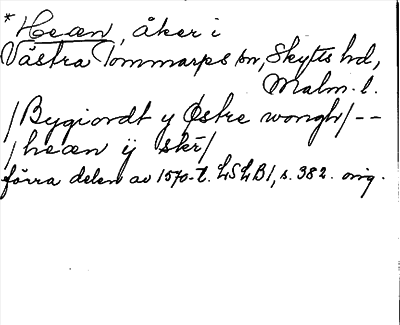 * Heæn, åker i
Västra Tommarps sn, Skytts hd,
Malm. l.
/Bygiordt y Østre wongh/--
/heæn ij skr/
förra delen av 1570-t. LSLB1, s. 382. orig.